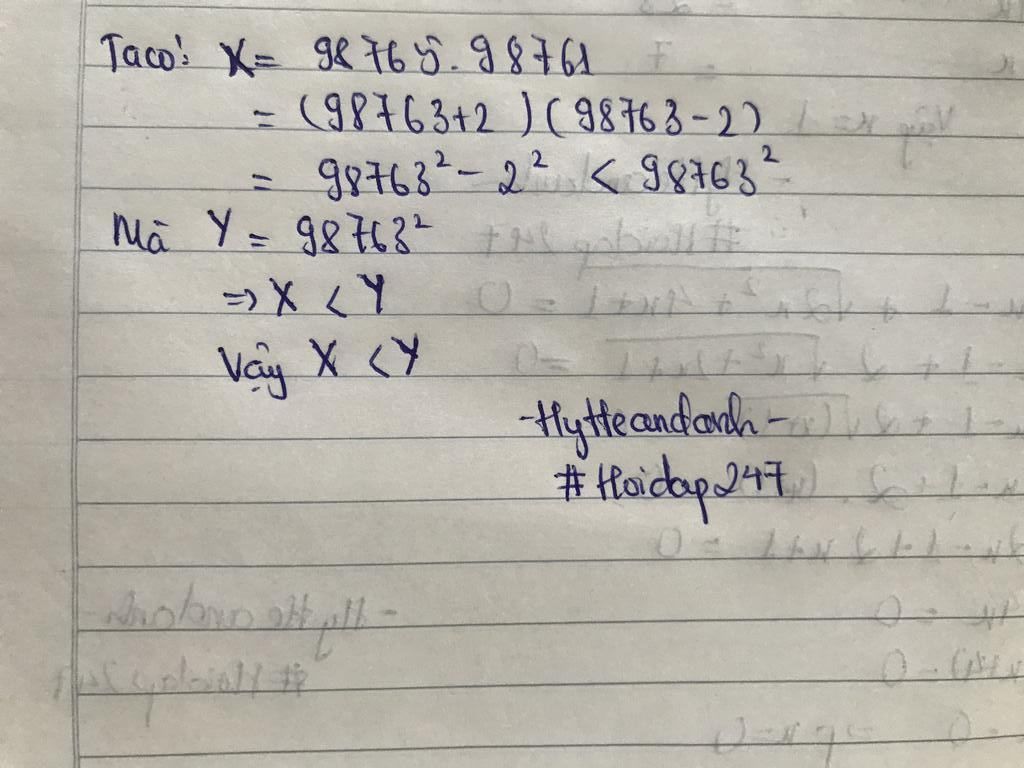 Ta có: X = 98765 . 98761
= (98763+2)(98763-2)
= 98763² - 2² < 98763²
Mà Y = 98763²
=> X < Y
Vậy X < Y
-HyHeandanh-
#Hoidap247